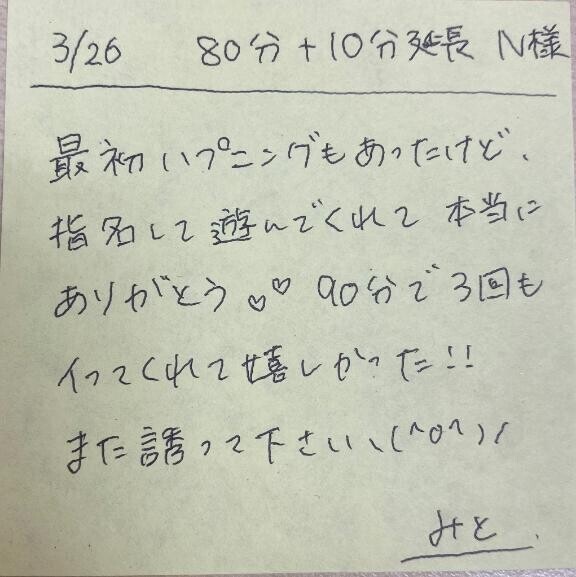 3/26 80分+10分延長 N様
最初ハプニングもあったけど、
指名して遊んでくれて本当に
ありがとう♡♡ 90分で3回も
イってくれて嬉しかった!!
また誘って下さい、(^o^)/
みと.